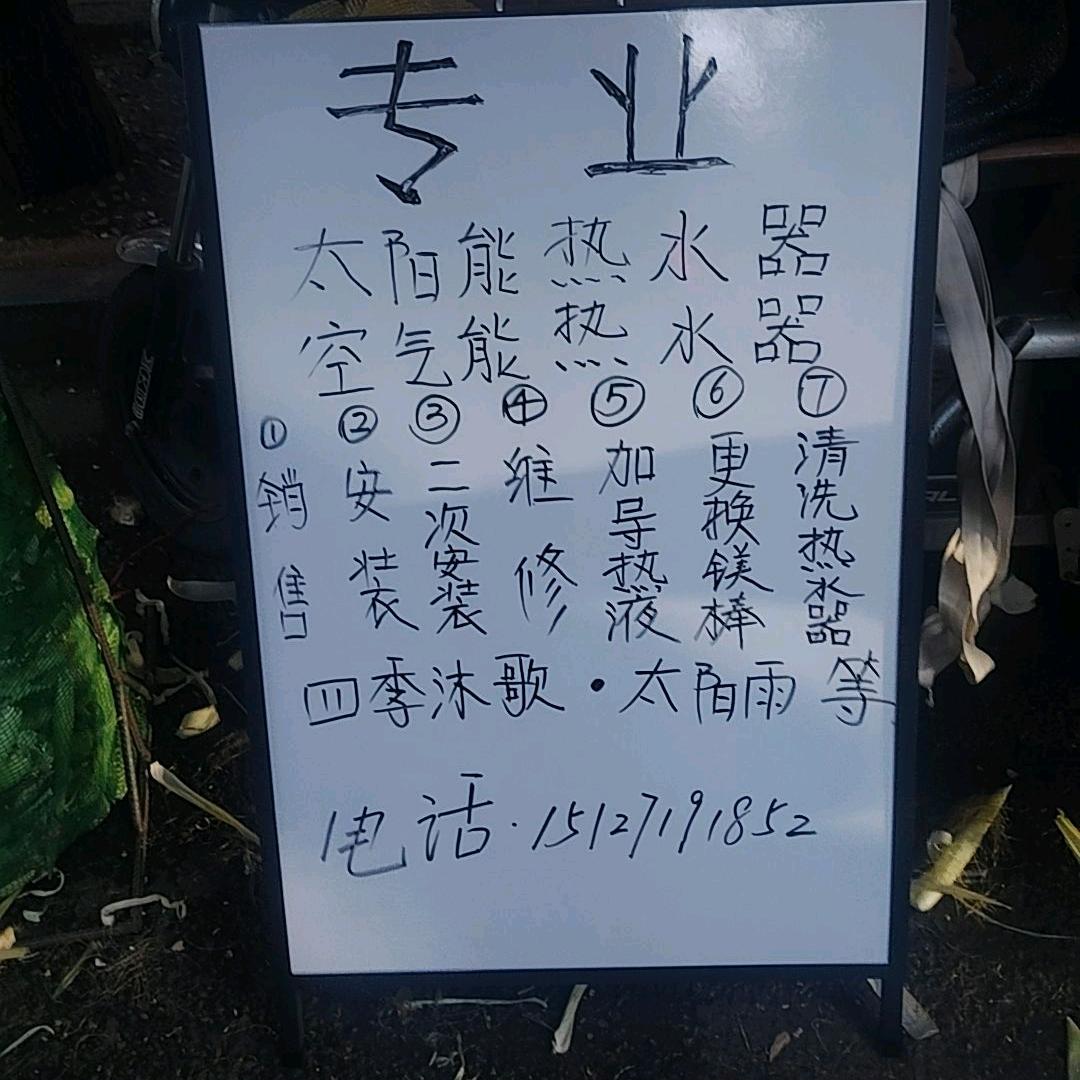 专业
太阳能热水器
空气能热水器
①销售
②安装
③二次安装
④维修
⑤加导热液
⑥更换镁棒
⑦清洗热水器
四季沐歌·太阳雨等
电话·15127191852